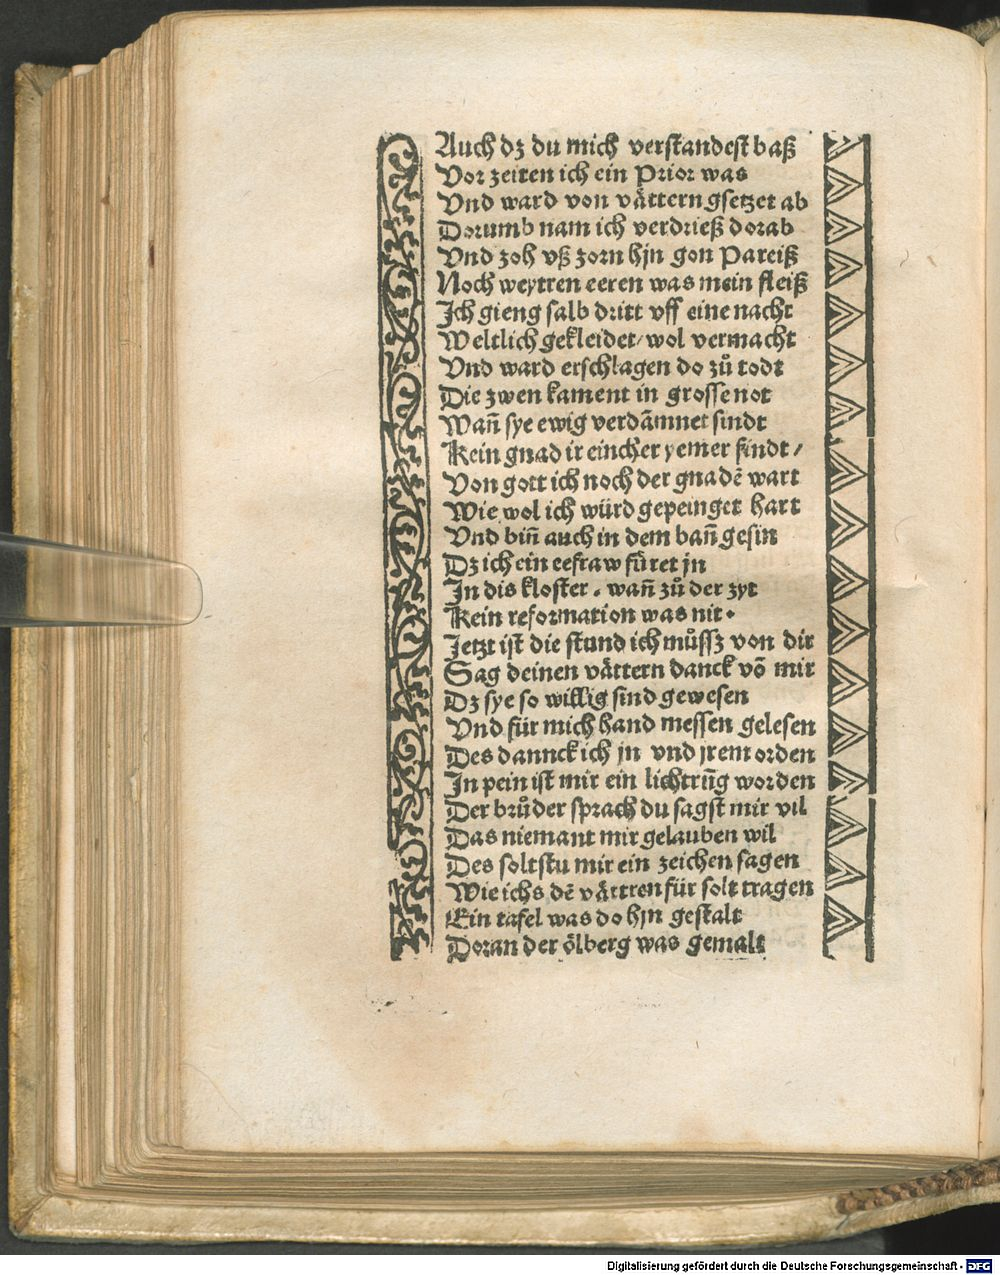 Auch dz du mich verstandest baß
Vor zeiten ich ein Prior was
Vnd ward von vättern gsetzet ab
Dorumb nam ich verdrieß dorab
Vnd zoh vß zorn hjn gon Pareiß
Noch weytren eeren was mein fleiß
Jch gieng salb dritt vff eine nacht
Weltlich gekleidet/ wol vermacht
Vnd ward erschlagen do zů todt
Die zwen kament in grosse not
Wañ sye ewig verdãmnet sindt
Kein gnad ir eincher yemer findt/
Von gott ich noch der gnadẽ wart
Wie wol ich würd gepeinget hart
Vnd biñ auch in dem bañ gesin
Dz ich ein eefraw füret jn
Jn dis kloster. wañ zů der zyt
Kein reformation was nit.
Jetzt ist die stund ich můssz von dir
Sag deinen vättern danck võ mir
Dz sye so willig sind gewesen
Vnd für mich hand messen gelesen
Des dannck ich jn vnd jrem orden
Jn pein ist mir ein lichtrũg worden
Der brůder sprach du sagst mir vil
Das niemant mir gelauben wil
Des soltstu mir ein zeichen sagen
Wie ichs dẽ vättren für solt tragen
Ein tafel was do hjn gestalt
Doran der ölberg was gemalt
Digitalisierung gefördert durch die Deutsche Forschungsgemeinschaft - DFG